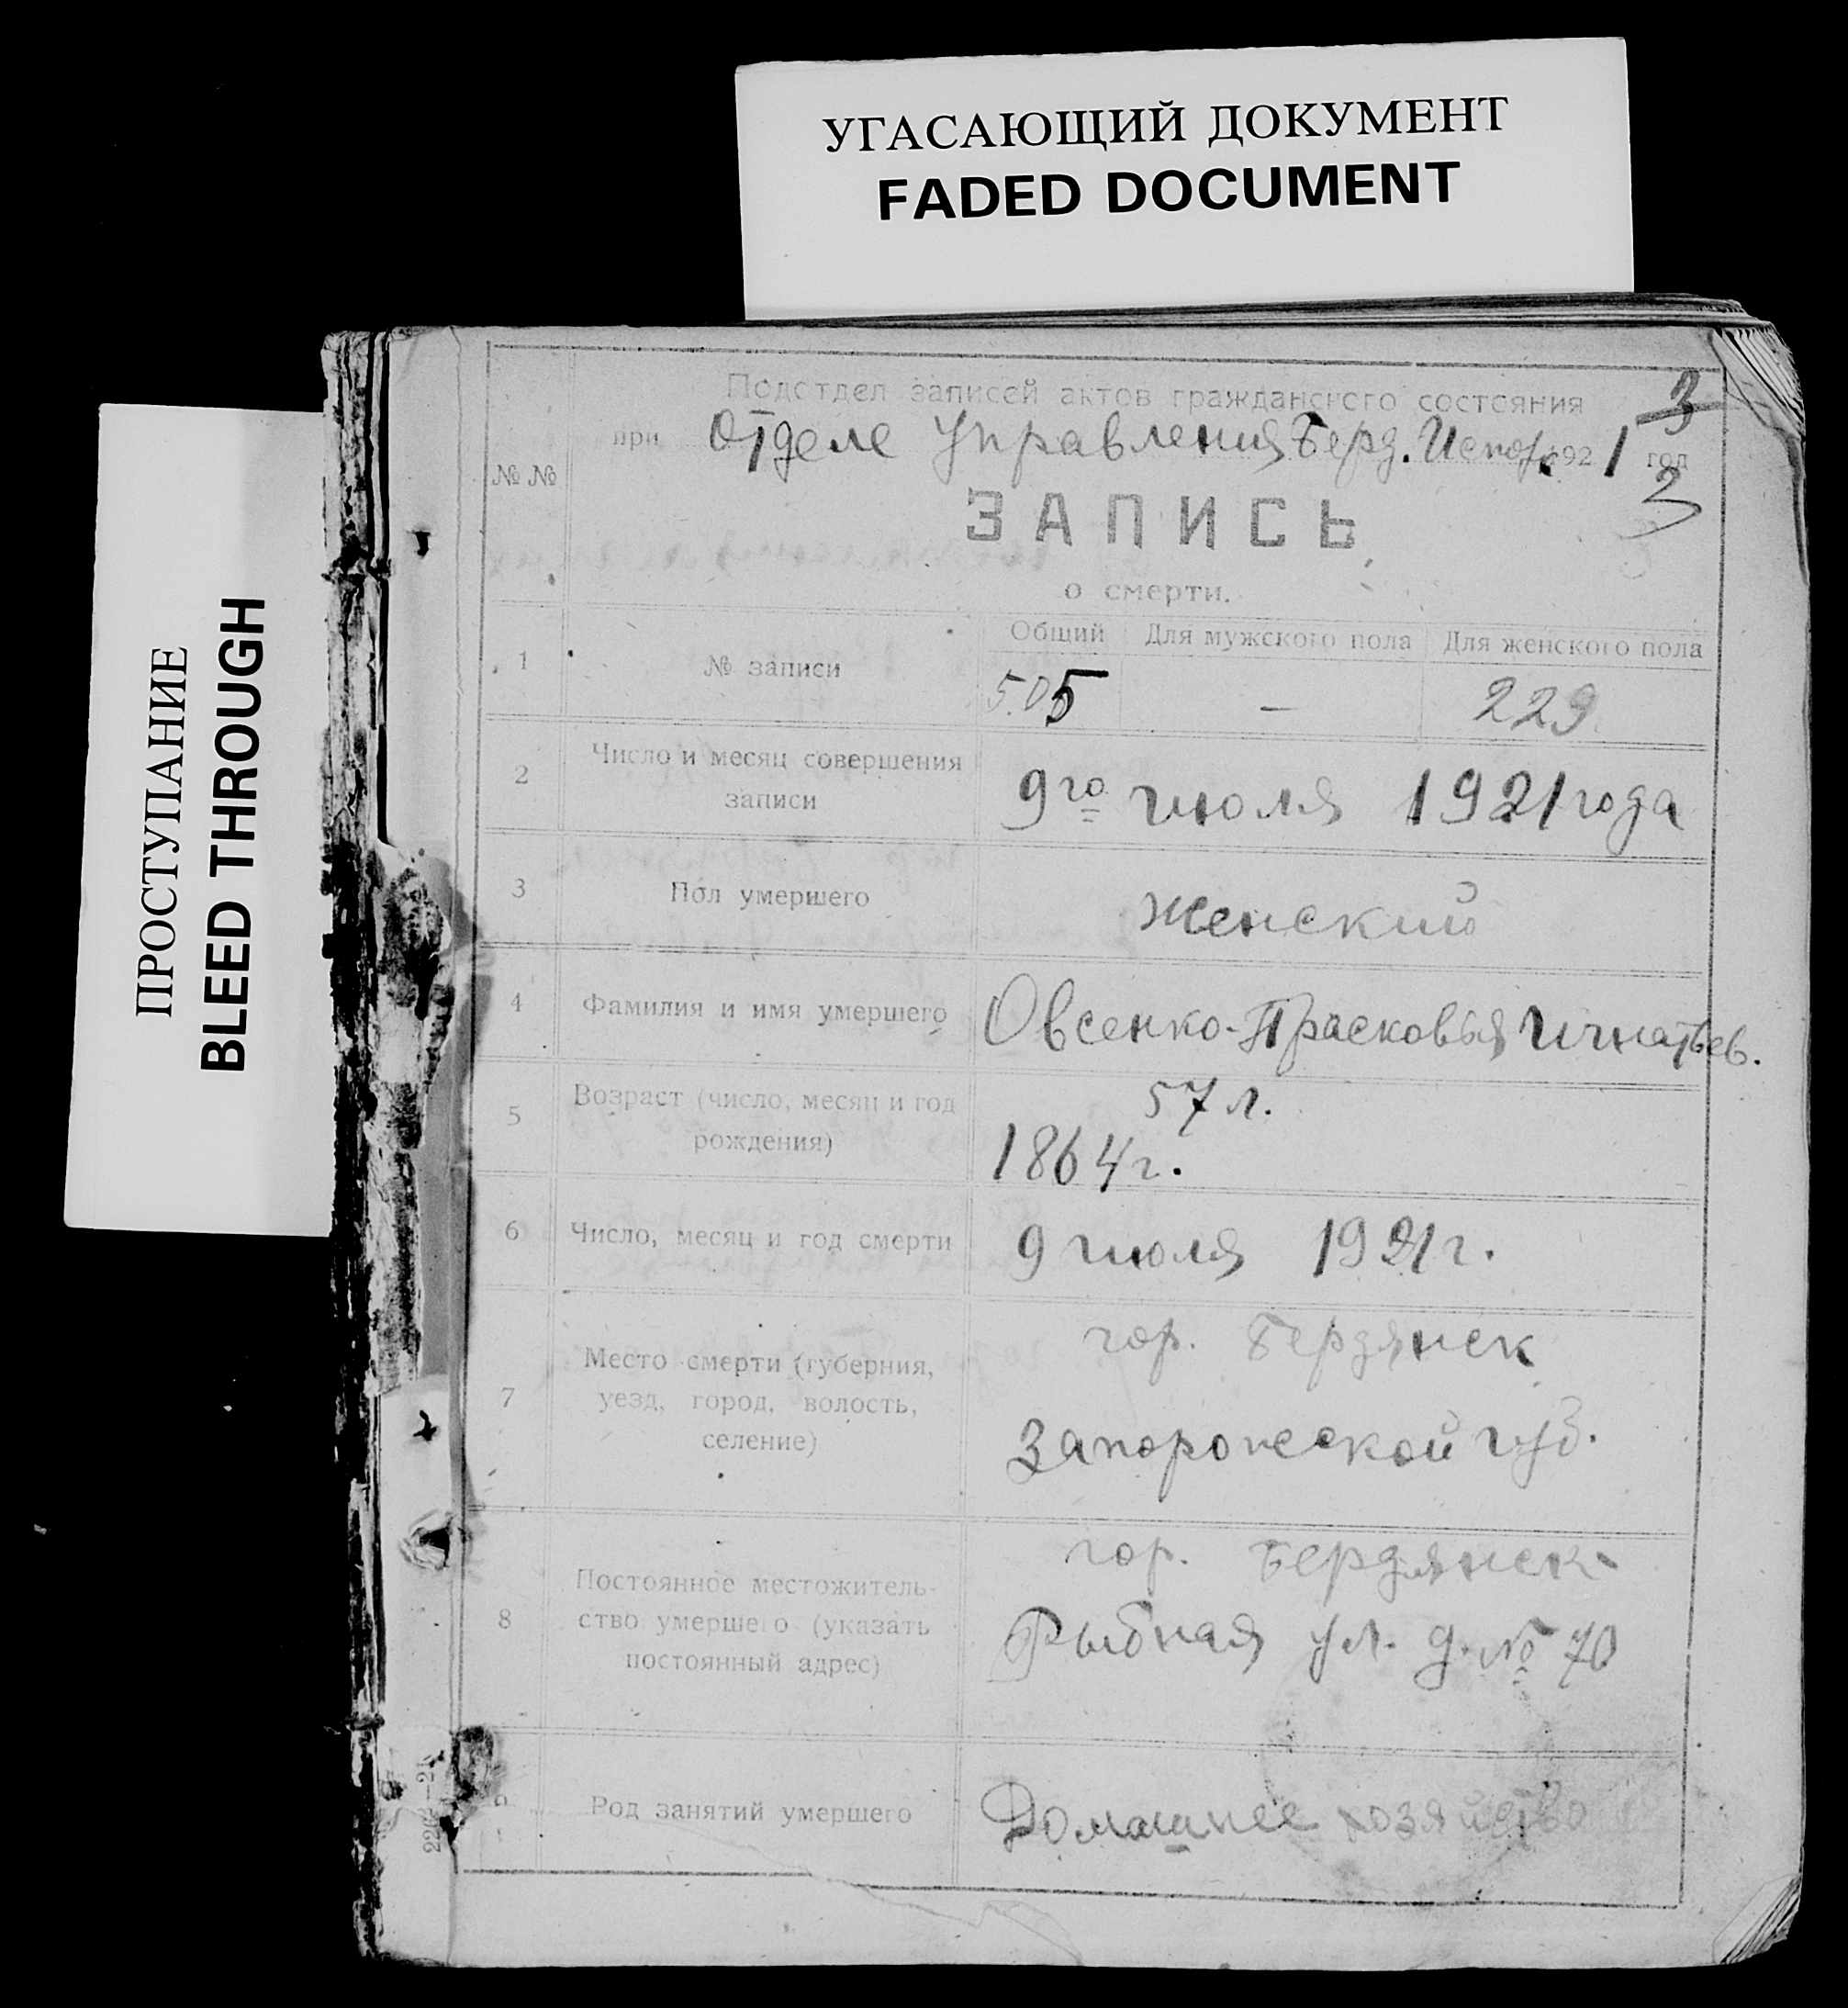 УГАСАЮЩИЙ ДОКУМЕНТ
FADED DOCUMENT
ПРОСТУПАНИЕ
BLEED THROUGH
Подотдел записей актов гражданского состояния
3
при Отделе Управления Берд. Испол. 1921 год
3
№ №
ЗАПИСЬ
о смерти.
Общий Для мужского пола Для женского пола
1 № записи 505 — 229
2 Число и месяц совершения
записи
9го июля 1921 года
3 Пол умершего женский
4 Фамилия и имя умершего Овсенко-Прасковья Игнатьев.
5 Возраст (число, месяц и год
рождения)
57 л.
1864 г.
6 Число, месяц и год смерти 9 июля 1921 г.
7 Место смерти (губерния,
уезд, город, волость,
селение)
гор. Бердянск
Запорожской губ.
8 Постоянное местожитель-
ство умершего (указать
постоянный адрес)
гор. Бердянск
Рыбная ул. д. № 70
9 Род занятий умершего Домашнее хозяйство